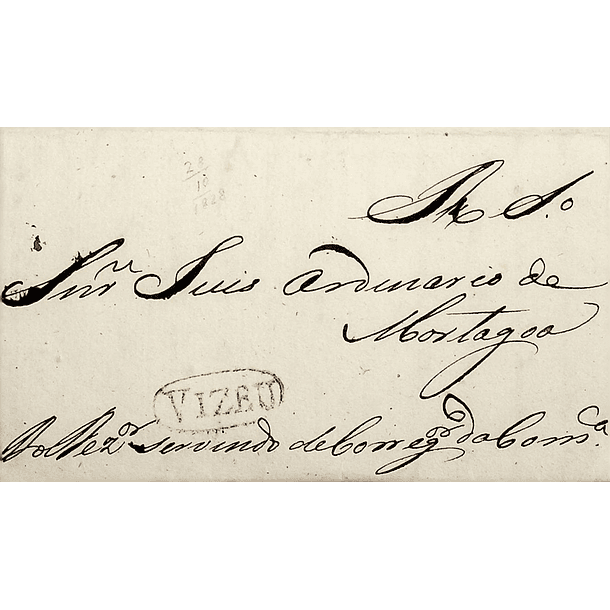 28
10
1828
R. S.º
Snr. Juis Ordinario de
Mortagoa
VIZEU
Dol Vezor servindo de Corregor da Coma